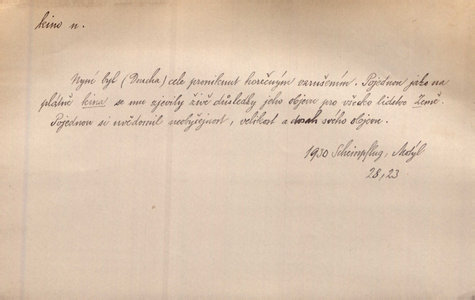 kino n.
Nyní byl (Dracha) cele proniknut horečným vzrušením. Pojednou jako na
plátně kina se mu zjevily živě důsledky jeho objevu pro všecko lidstvo Země.
Pojednou si uvědomil neobyčejnost, velikost a dosah svého objevu.
1930 Scheinpflug, Motýl
28, 23